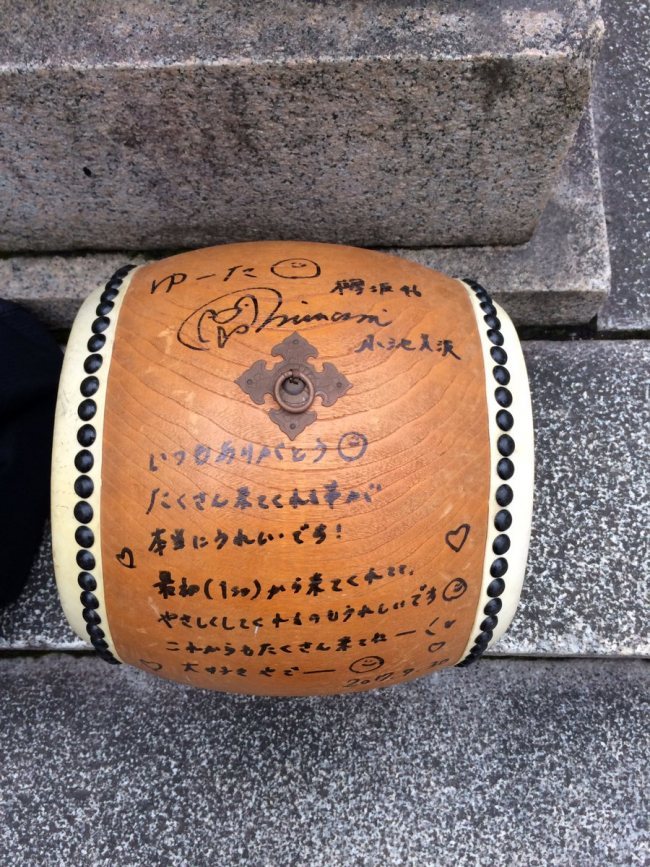 ゆーた
欅坂46
Minami
小池美波
いつもありがとう
たくさん来てくれる事が
本当にうれしいです!
最初(1st)から来てくれて、
やさしくしてくれるのもうれしいです
これからもたくさん来てねー!
大好きやでー
2017.9.30